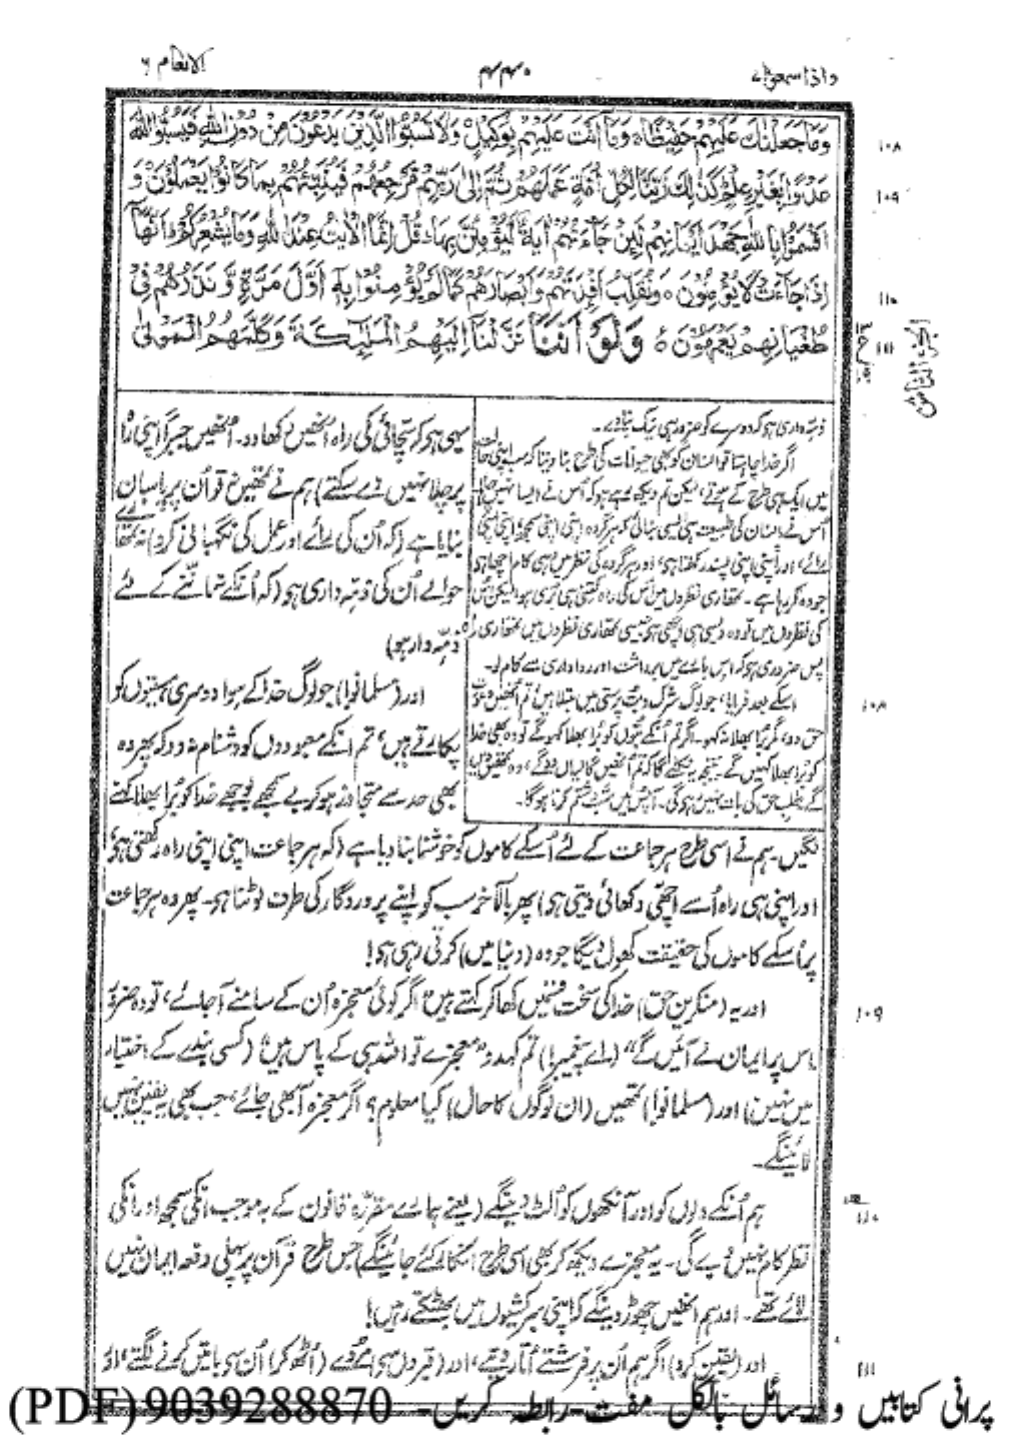 الانعام ۶
۴۴۰
واذا سمعوا ۷
وَمَا جَعَلْنٰكَ عَلَيْهِمْ حَفِيْظًا ۚ وَمَآ اَنْتَ عَلَيْهِمْ بِوَكِيْلٍ ۝ وَلَا تَسُبُّوا الَّذِيْنَ يَدْعُوْنَ مِنْ دُوْنِ اللّٰهِ فَيَسُبُّوا اللّٰهَ
۱۰۸
عَدْوًۢا بِغَيْرِ عِلْمٍ ۭ كَذٰلِكَ زَيَّنَّا لِكُلِّ اُمَّةٍ عَمَلَهُمْ ۠ ثُمَّ اِلٰى رَبِّهِمْ مَّرْجِعُهُمْ فَيُنَبِّئُهُمْ بِمَا كَانُوْا يَعْمَلُوْنَ ۝ وَ
۱۰۹
اَقْسَمُوْا بِاللّٰهِ جَهْدَ اَيْمَانِهِمْ لَئِنْ جَاۗءَتْهُمْ اٰيَةٌ لَّيُؤْمِنُنَّ بِهَا ۭ قُلْ اِنَّمَا الْاٰيٰتُ عِنْدَ اللّٰهِ وَمَا يُشْعِرُكُمْ ۙ اَنَّهَآ
اِذَا جَاۗءَتْ لَا يُؤْمِنُوْنَ ۝ وَنُقَلِّبُ اَفْـِٕدَتَهُمْ وَاَبْصَارَهُمْ كَمَا لَمْ يُؤْمِنُوْا بِهٖٓ اَوَّلَ مَرَّةٍ وَّنَذَرُهُمْ فِيْ
۱۱۰
طُغْيَانِهِمْ يَعْمَهُوْنَ ۝ وَلَوْ اَنَّنَا نَزَّلْنَآ اِلَيْهِمُ الْمَلٰۗىِٕكَةَ وَكَلَّمَهُمُ الْمَوْتٰى
۱۱۱
ذمہ داری ہو کہ دوسرے کو ضرور ہی نیک بنا دے۔
اگر خدا چاہتا تو انسان کو بھی حیوانات کی طرح بنا دیتا کہ سب اپنی حالت
میں ایک ہی طرح کے ہوتے، لیکن تم دیکھ رہے ہو کہ اُس نے ایسا نہیں چاہا
اُس نے انسان کی طبیعت ہی ایسی بنائی کہ ہر گروہ اپنی اپنی سمجھ، اپنی اپنی
رائے، اور اپنی اپنی پسند رکھتا ہو، اور ہر گروہ کی نظر میں وہی کام اچھا ہو
جو وہ کر رہا ہے۔ تمھاری نظروں میں اُس کی راہ کتنی ہی بُری ہو لیکن اُس
کی نظروں میں تو وہ ویسی ہی اچھی ہو جیسی تمھاری نظروں میں تمھاری راہ
پس ضروری ہو کہ اس بارے میں برداشت اور رواداری سے کام لو۔
اسکے بعد فرمایا، جو لوگ شرک و بت پرستی میں مبتلا ہیں، تم اُنھیں دعوت
حق دو، مگر بُرا بھلا نہ کہو۔ اگر تم اُنکے بتوں کو بُرا بھلا کہو گے تو وہ بھی خدا
کو بُرا بھلا کہیں گے۔ نتیجہ یہ نکلے گا کہ تم اُنھیں گالیاں دو گے، وہ تمھیں دیں
گے۔ طلب حق کی بات نہیں ہوگی۔ آپس میں سب و شتم کرنا ہوگا۔
۱۰۸
یہی ہو کہ سچائی کی راہ اُنھیں دکھا دو۔ اُنھیں جبراً اپنی راہ
پر چلا نہیں دے سکتے) ہم نے تمھیں نہ تو اُن پر پاسبان
بنایا ہے (کہ اُن کی رائے اور عمل کی نگہبانی کرو) نہ تمھارے
حوالے اُن کی ذمہ داری ہو (کہ اُنکے نہ ماننے کے لئے
ذمہ دار ہو)
اور (مسلمانو!) جو لوگ خدا کے سوا دوسری ہستیوں کو
پکارتے ہیں، تم اُنکے معبودوں کو دشنام نہ دو کہ پھر وہ
بھی حد سے متجاوز ہو کر بے سمجھے بوجھے خدا کو بُرا بھلا کہنے
لگیں۔ ہم نے اسی طرح ہر جماعت کے لئے اُسکے کاموں کو خوشنما بنا دیا ہے (کہ ہر جماعت اپنی اپنی راہ رکھتی ہو
اور اپنی ہی راہ اُسے اچھی دکھائی دیتی ہو) پھر بالآخر سب کو اپنے پروردگار کی طرف لوٹنا ہو۔ پھر وہ ہر جماعت
پر اُسکے کاموں کی حقیقت کھول دیگا جو وہ (دنیا میں) کرتی رہی ہو!
اور یہ (منکرین حق) خدا کی سخت قسمیں کھا کر کہتے ہیں، اگر کوئی معجزہ اُن کے سامنے آجائے، تو وہ ضرور
۱۰۹
اس پر ایمان لے آئیں گے" (اے پیغمبر!) تم کہدو: "معجزے تو اللہ ہی کے پاس ہیں" (کسی بندے کے اختیار
میں نہیں) اور (مسلمانو!) تمھیں (ان لوگوں کا حال) کیا معلوم؟ اگر معجزہ آبھی جائے، جب بھی یہ یقین نہیں
لائینگے۔
ہم اُنکے دلوں کو اور آنکھوں کو اُلٹ دینگے (یعنے ہمارے مقررہ قانون کے بموجب انکی سمجھ اور انکی
۱۱۰
نظر کام نہیں دے گی۔ یہ معجزے دیکھ کر بھی اسی طرح انکار کئے جائینگے) جس طرح قرآن پر پہلی دفعہ ایمان نہیں
لائے تھے۔ اور ہم انھیں چھوڑ دینگے کہ اپنی سرکشیوں میں بھٹکتے رہیں!
اور (یقین کرو) اگر ہم اُن پر فرشتے اُتار دیتے، اور (قبر وں سے) مُردے (اُٹھ کر) اُن سے باتیں کرنے لگتے، اور
۱۱۱
پرانی کتابیں و رسائل بالکل مفت۔ رابطہ کریں۔ 9039288870 (PDF)